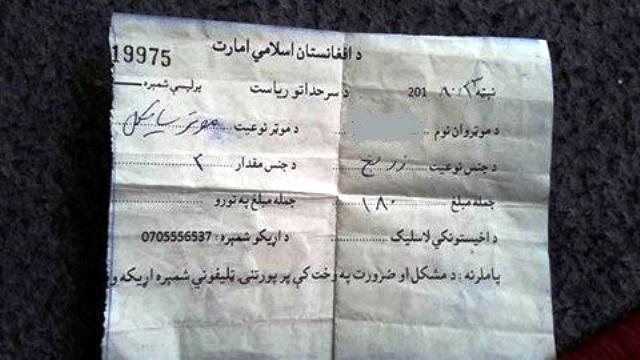 د افغانستان اسلامي امارت 19975
نېټه ۱۳/۸ 201 د سرحداتو ریاست پرلیسې شمېره
د موټروان نوم د موټر نوعیت موټر سایکل
د جنس نوعیت د جنس مقدار ۲
جمله مبلغ ۱۸۰ جمله مبلغ په تورو
د اخیستونکي لاسلیک د اړیکو شمېره : 0705556537
پاملرنه : د مشکل او ضرورت په وخت کې پر پورتنۍ ټلیفوني شمېره اړیکه و